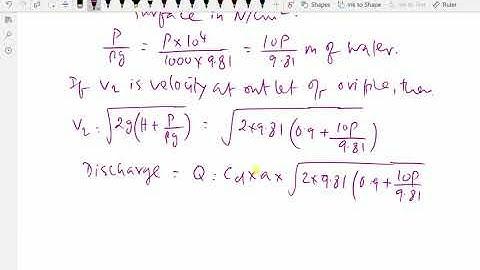 Ink to Shape Ink to Math Ruler
surface in N/cm².
P/ρg = P×10⁴/1000×9.81 = 10P/9.81 m of water.
If V₂ is velocity at outlet of orifice, then
V₂ = √2g(H + P/ρg) = √2×9.81(0.9 + 10P/9.81)
Discharge = Q = Cd×a×√2×9.81(0.9 + 10P/9.81